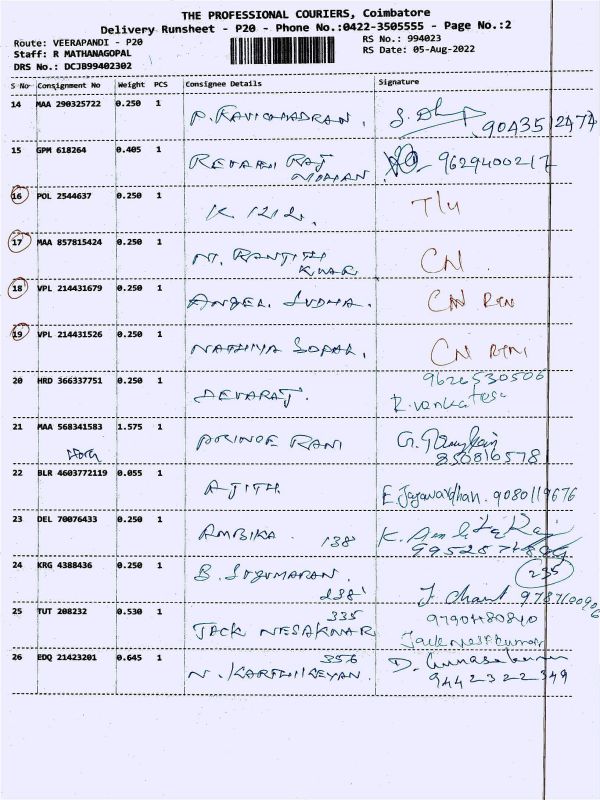 THE PROFESSIONAL COURIERS, Coimbatore
Delivery Runsheet - P20 - Phone No.:0422-3505555 - Page No.:2
Route: VEERAPANDI - P20
RS No.: 994023
Staff: R MATHANAGOPAL
RS Date: 05-Aug-2022
DRS No.: DCJB99402302
S No Consignment No Weight PCS Consignee Details Signature
14 MAA 290325722 0.250 1 P. RAVICHADRAN.
15 GPM 618264 0.405 1 REVAHI RAJ 9629400217
MOHAN
16 POL 2544637 0.250 1 K.
17 MAA 857815424 0.250 1 CN
18 VPL 214431679 0.250 1 ANGEL SUDHA. CN RTN
19 VPL 214431526 0.250 1 NATHIYA GOPAL. CN RTN
9626530506
20 HRD 366337751 0.250 1 DEVARAJ. R. Venkatesa
21 MAA 568341583 1.575 1 PRINCE RANI G.
850816578
22 BLR 4603772119 0.055 1 AJITH. E. Jayavardhan. 9080119676
23 DEL 70076433 0.250 1 AMBIKA. 138 K.
24 KRG 4388436 0.250 1 B. SUGUMARAN. 235
238
25 TUT 208232 0.530 1 335 9790480810
JACK NESAKMAR Jacknesakumar
26 EDQ 21423201 0.645 1 356 D. Gunasekaran
N. KARTHIKEYAN. 9442322349